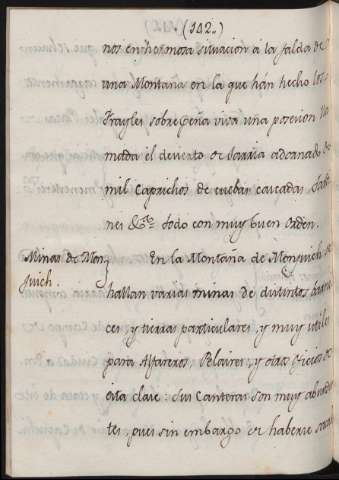 (112.)
nos en hermosa situacion á la falda de
una Montaña en la que hán hecho los
Frayles sobre peña viva una posecion lla
mada el decierto de Sarria adornado de
mil Caprichos de cuebas cavadas, Jardi
nes &ca todo con muy buen orden.
Minas de Mon
juich.
En la Montaña de Monjuich se
hallan varias minas de distintos
ces, y tierras particulares, y muy utiles
para Alfareros, Pelaires, y otros oficios de
esta clase: Sus Canteras son muy abundan
tes, pues sin embargo de haberse sacado